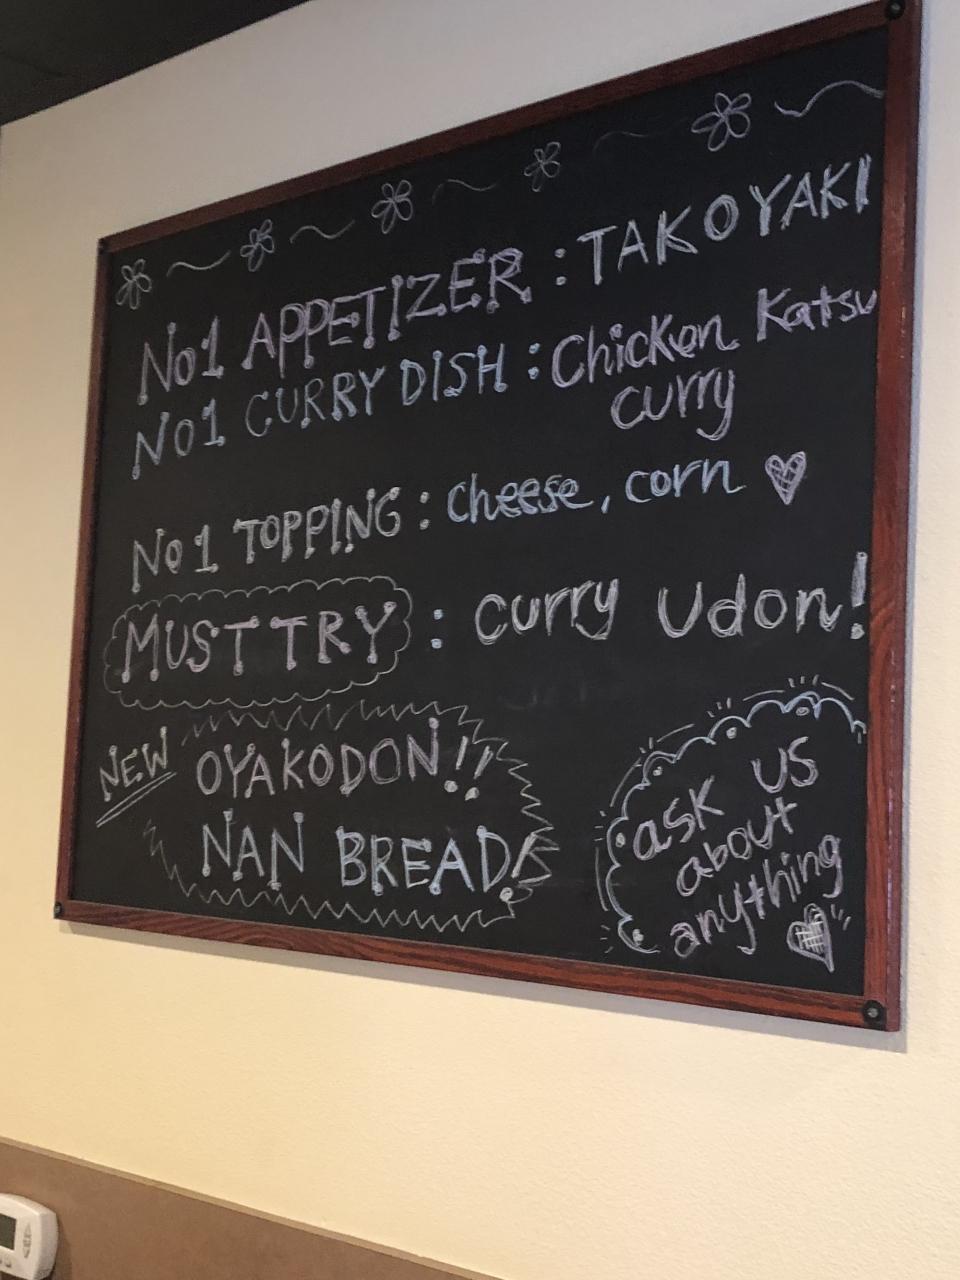 No1 APPETIZER : TAKOYAKI
No1 CURRY DISH : Chicken Katsu
curry
No1 TOPPING : cheese, corn
MUST TRY : curry Udon!
NEW OYAKODON!!
NAN BREAD!
ask US
about
anything